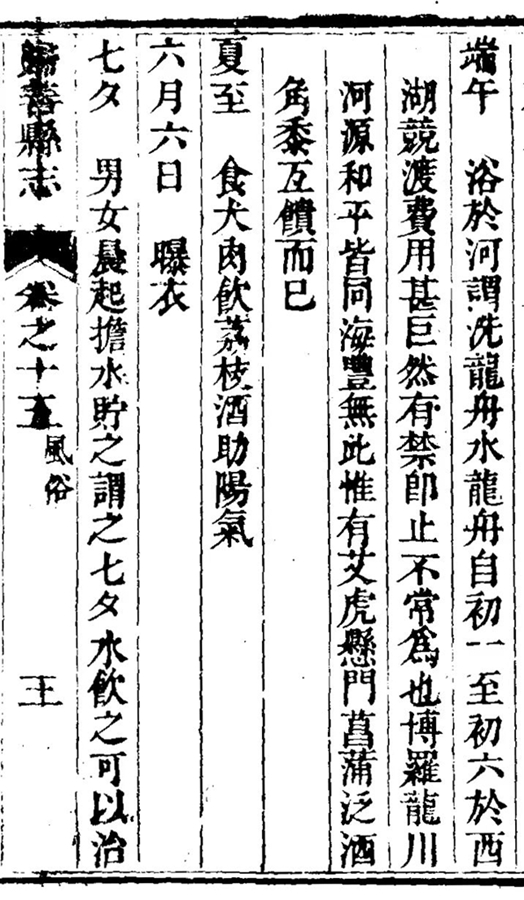 端午　浴於河謂洗龍舟水龍舟自初一至初六於西
湖競渡費用甚巨然有禁即止不常為也博羅龍川
河源和平皆同海豐無此惟有艾虎懸門菖蒲泛酒
角黍互饋而已
夏至　食犬肉飲荔枝酒助陽氣
六月六日　曝衣
七夕　男女晨起擔水貯之謂之七夕水飲之可以治
善縣志　卷之十五　風俗